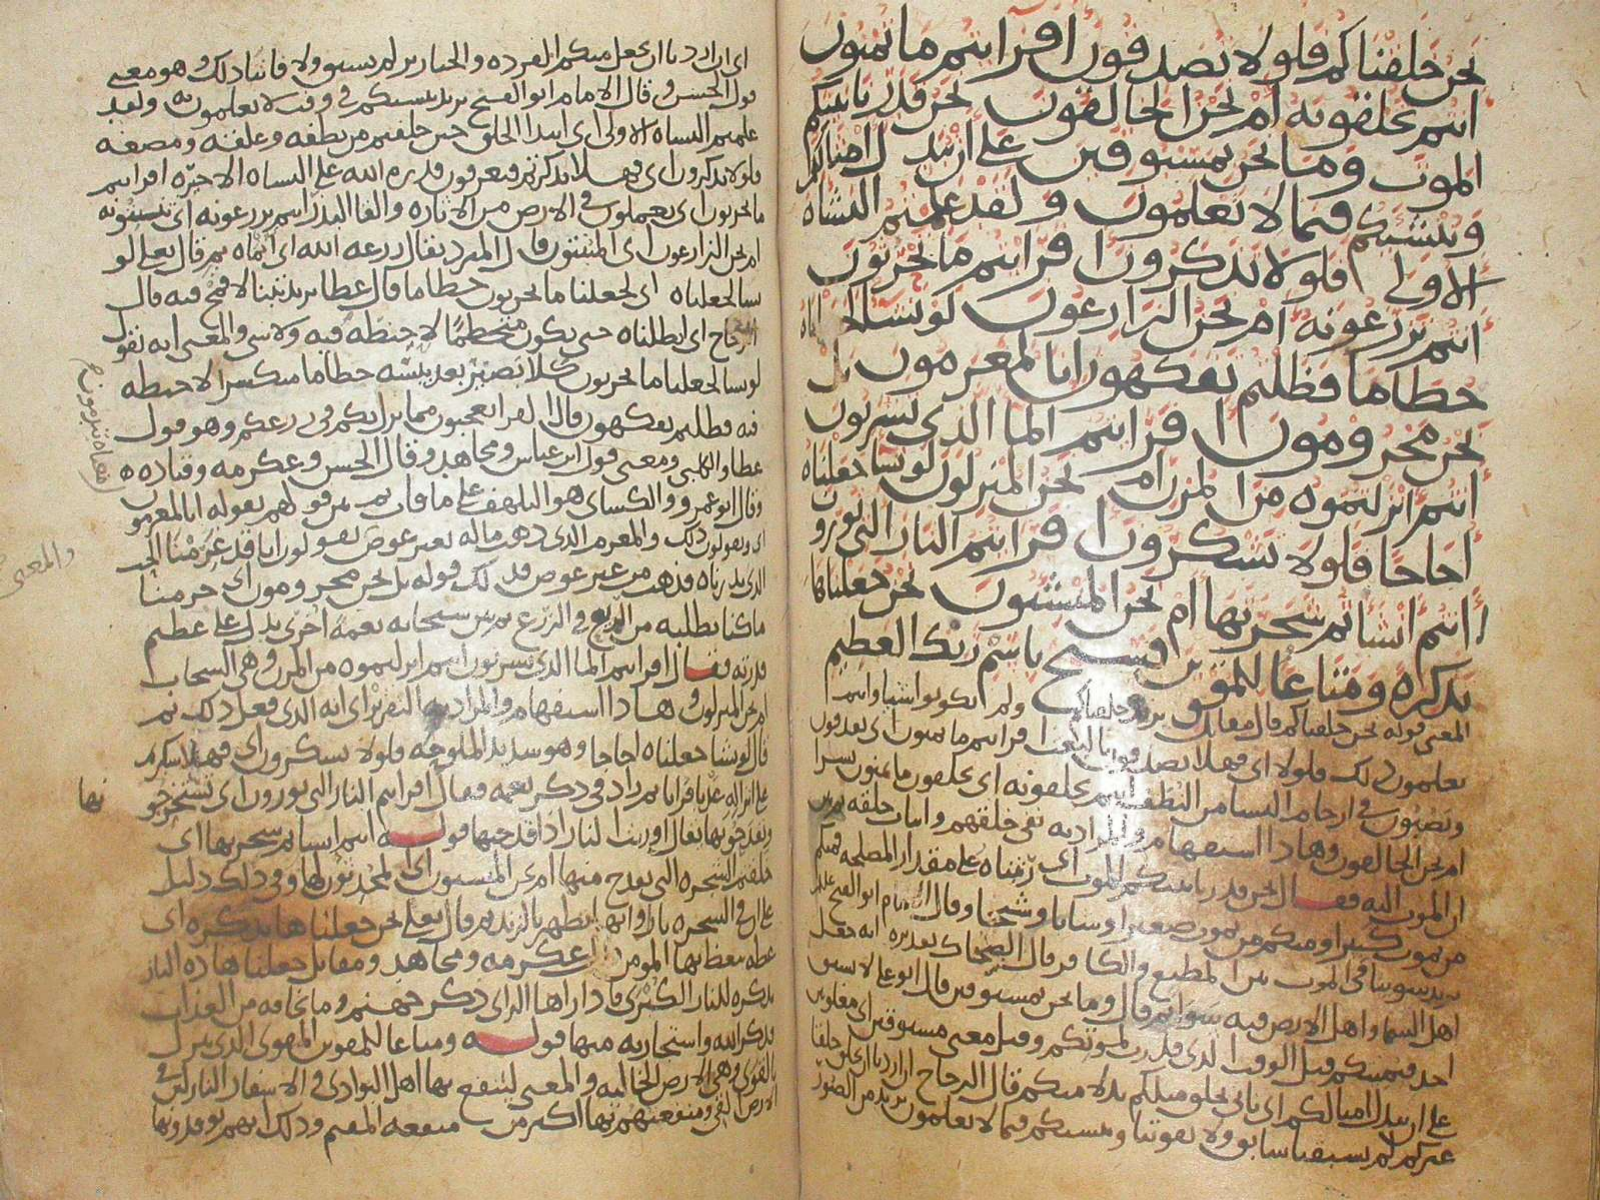 نحن خلقناكم فلولا تصدقون افرايتم ما تمنون
اانتم تخلقونه ام نحن الخالقون نحن قدرنا بينكم
الموت وما نحن بمسبوقين على ان نبدل امثالكم
وننشيكم فيما لا تعلمون ولقد علمتم النشاه
الاولى فلولا تذكرون افرايتم ما تحرثون
اانتم تزرعونه ام نحن الزارعون لو نشا لجعلناه
حطاما فظلتم تفكهون انا لمغرمون بل
نحن محرومون افرايتم الما الذي تشربون
اانتم انزلتموه من المزن ام نحن المنزلون لو نشا جعلناه
اجاجا فلولا تشكرون افرايتم النار التي تورون
اانتم انشاتم شجرتها ام نحن المنشيون نحن جعلناها
تذكرة ومتاعا للمقوين فسبح باسم ربك العظيم
المعنى قوله نحن خلقناكم قال مقاتل يريد خلقناكم ولم تكونوا شيا وانتم
تعلمون ذلك فلولا اي فهلا تصدقون بالبعث افرايتم ما تمنون اي تقذفون
وتصبون في ارحام النسا من النطف اانتم تخلقونه اي تخلقون ما تمنون بشرا
ام نحن الخالقون وهاذا استفهام والمراد به نفي خلقهم واثبات خلقه
ان الموت اليه فقال نحن قدرنا بينكم الموت اي رتبناه على مقدار المصلحه فمنكم
من يموت كبيرا ومنكم من يموت صغيرا وشابا وشيخا وقال الامام ابو الفتح
يريد سوينا في الموت بين المطيع والكافر قال الضحاك تقديره انه جعل
اهل السما واهل الارض فيه سوا ثم قال وما نحن بمسبوقين قال ابو علي لا يسبق
احد فيمنيتكم قبل الوقت الذي قدرت لموتكم وقيل معنى مسبوقين اي مغلوبين
على ان نبدل امثالكم اي ناتي بخلق مثلكم بدلا منكم قال الزجاج ان اردنا ان نخلق خلقا
غيركم لم يسبقنا سابق ولا يفوتنا وننشيكم فيما لا تعلمون يريد من الصور
اي ان اردنا ان نجعل منكم القرده والخنازير لم نسبق ولا فاتنا ذلك وهو معنى
قول الحسن وقال الامام ابو الفتح يريد ننشيكم في وقت لا تعلمونه ولقد
علمتم النشاه الاولى اي ابتدا الخلق حين خلقتم من نطفه وعلقه ومضغه
فلولا تذكرون اي فهلا تذكرتم فتعرفون قدره الله على النشاه الاخره افرايتم
ما تحرثون اي تعملون في الارض من الاثاره والقا البذر اانتم تزرعونه اي تنبتونه
ام نحن الزارعون اي المنبتون قال المبرد يقال زرعه الله اي انماه ثم قال تعالى لو
نشا لجعلناه اي لجعلنا ما تحرثون حطاما قال عطا يريد تبنا لا قمح فيه قال
الزجاج اي ابطلناه حتى يكون متحطما لا حنطه فيه ولا شي والمعنى انه نقول
لو نشا لجعلنا ما تحرثون كلا نصير بعد يبسه حطاما متكسرا لا حنطه
فيه فظلتم تفكهون قال الفرا تعجبون مما نزل بكم في زرعكم وهو قول
عطا والكلبي ومعنى قول ابن عباس ومجاهد وقال الحسن وعكرمه وقتاده
وقال ابو عمرو والكساي هو التلهف على ما فات ثم بين قولهم بقوله انا لمغرمون
اي وتقولون ذلك والمغرم الذي ذهب ماله بغير عوض تقولون انا قد غرمنا الحب
الذي بذرناه فذهب من غير عوض فذلك قوله بل نحن محرومون اي حرمنا
ما كنا نطلبه من الريع في الزرع ثم بين سبحانه نعمة اخرى تدل على عظيم
قدرته فقال افرايتم الما الذي تشربون اانتم انزلتموه من المزن وهي السحاب
ام نحن المنزلون وهاذا استفهام والمراد به التقرير اي انه الذي فعل ذلك ثم
قال لو نشا جعلناه اجاجا وهو شديد الملوحه فلولا تشكرون اي فهلا شكرتم
على انزاله عذبا فراتا ثم زاد في ذكر نعمه فقال افرايتم النار التي تورون اي تستخرجون
وتقدحونها يقال اوريت النار اذا قدحتها قوله اانتم انشاتم شجرتها اي
خلقتم الشجره التي تقدح منها ام نحن المنشيون اي المحدثون لها وفي ذلك دليل
على ان في الشجره نارا وانها تظهر بالزند ثم قال تعالى نحن جعلناها تذكره اي
عظه يتعظ بها المومن عكرمه ومجاهد ومقاتل جعلنا هاذه النار
تذكره للنار الكبرى فاذا راها الراي ذكر جهنم وما يخافه من العذاب
فذكر الله واستجار به منها قوله ومتاعا للمقوين المقوي الذي ينزل
بالقوى وهي الارض الخاليه والمعنى لينتفع بها اهل البوادي في الاسفار النازلون في
الارض القي ومنفعتهم بها اكثر من منفعه المقيم وذلك انهم يوقدونها
والمعنى
بها